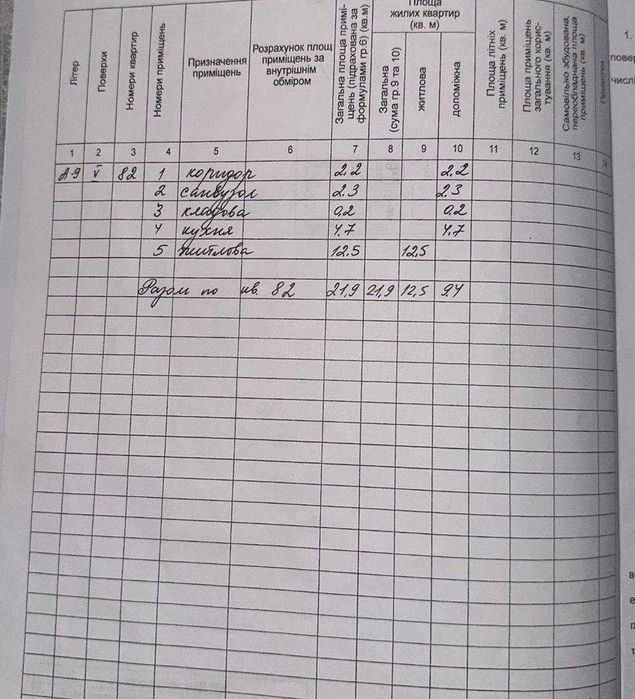 Літер
Поверхи
Номери квартир
Номери приміщень
Призначення
приміщень
Розрахунок площ
приміщень за
внутрішнім
обміром
Загальна площа примі-
щень (підрахована за
формулами гр.6) (кв.м)
Площа
жилих квартир
(кв. м)
Загальна
(сума гр. 9 та 10)
житлова
допоміжна
Площа літніх
приміщень (кв. м)
Площа приміщень
загального корис-
тування (кв. м)
Самовільно збудована,
переобладнана площа
приміщень (кв. м)
1 2 3 4 5 6 7 8 9 10 11 12 13
А-9 V 82 1 коридор 2.2 2.2
2 санвузол 2.3 2.3
3 кладова 0.2 0.2
4 кухня 4.7 4.7
5 житлова 12.5 12.5
Разом по кв. 82 21,9 21,9 12,5 9.4
1.
повер
числі